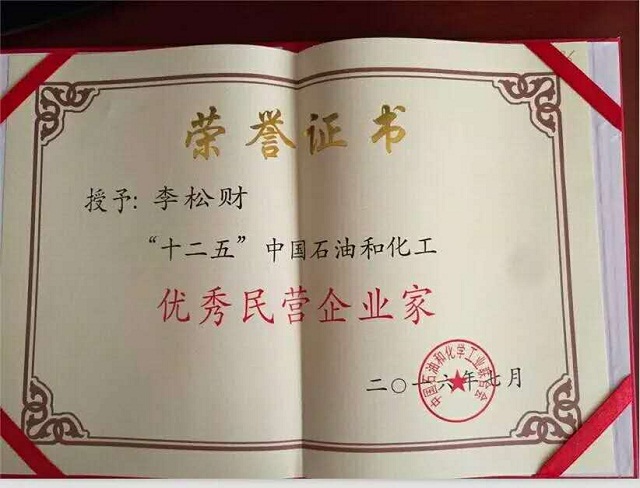 荣誉证书
授予: 李松财
“十二五”中国石油和化工
优秀民营企业家
二〇一六年七月
中国石油和化学工业联合会